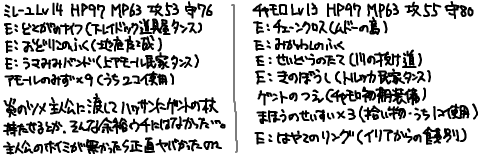 ミレーユLv14 HP97 MP63 攻53 守76
E:どくがのナイフ(フレイドック道具屋タンス)
E:おどりこのふく(地底魔城)
E:うさみみバンド(上アモール民家タンス)
アモールのみず×9(うち2コ使用)
炎のツメ主人公に渡してハッサンにゲントの杖
持たせるとか、そんな余裕ウチにはなかった…。
主人公のホイミが無かったら正直ヤバかったので
チャモロLv13 HP97 MP63 攻55 守80
E:チェーンクロス(ムドーの島)
E:みかわしのふく
E:せいどうのたて(川の抜け道)
E:きのぼうし(トルッカ民家タンス)
ゲントのつえ(チャモロ初期装備)
まほうのせいすい×3(拾い物・うち1コ使用)
E:はやてのリング(イリアからの餞別)